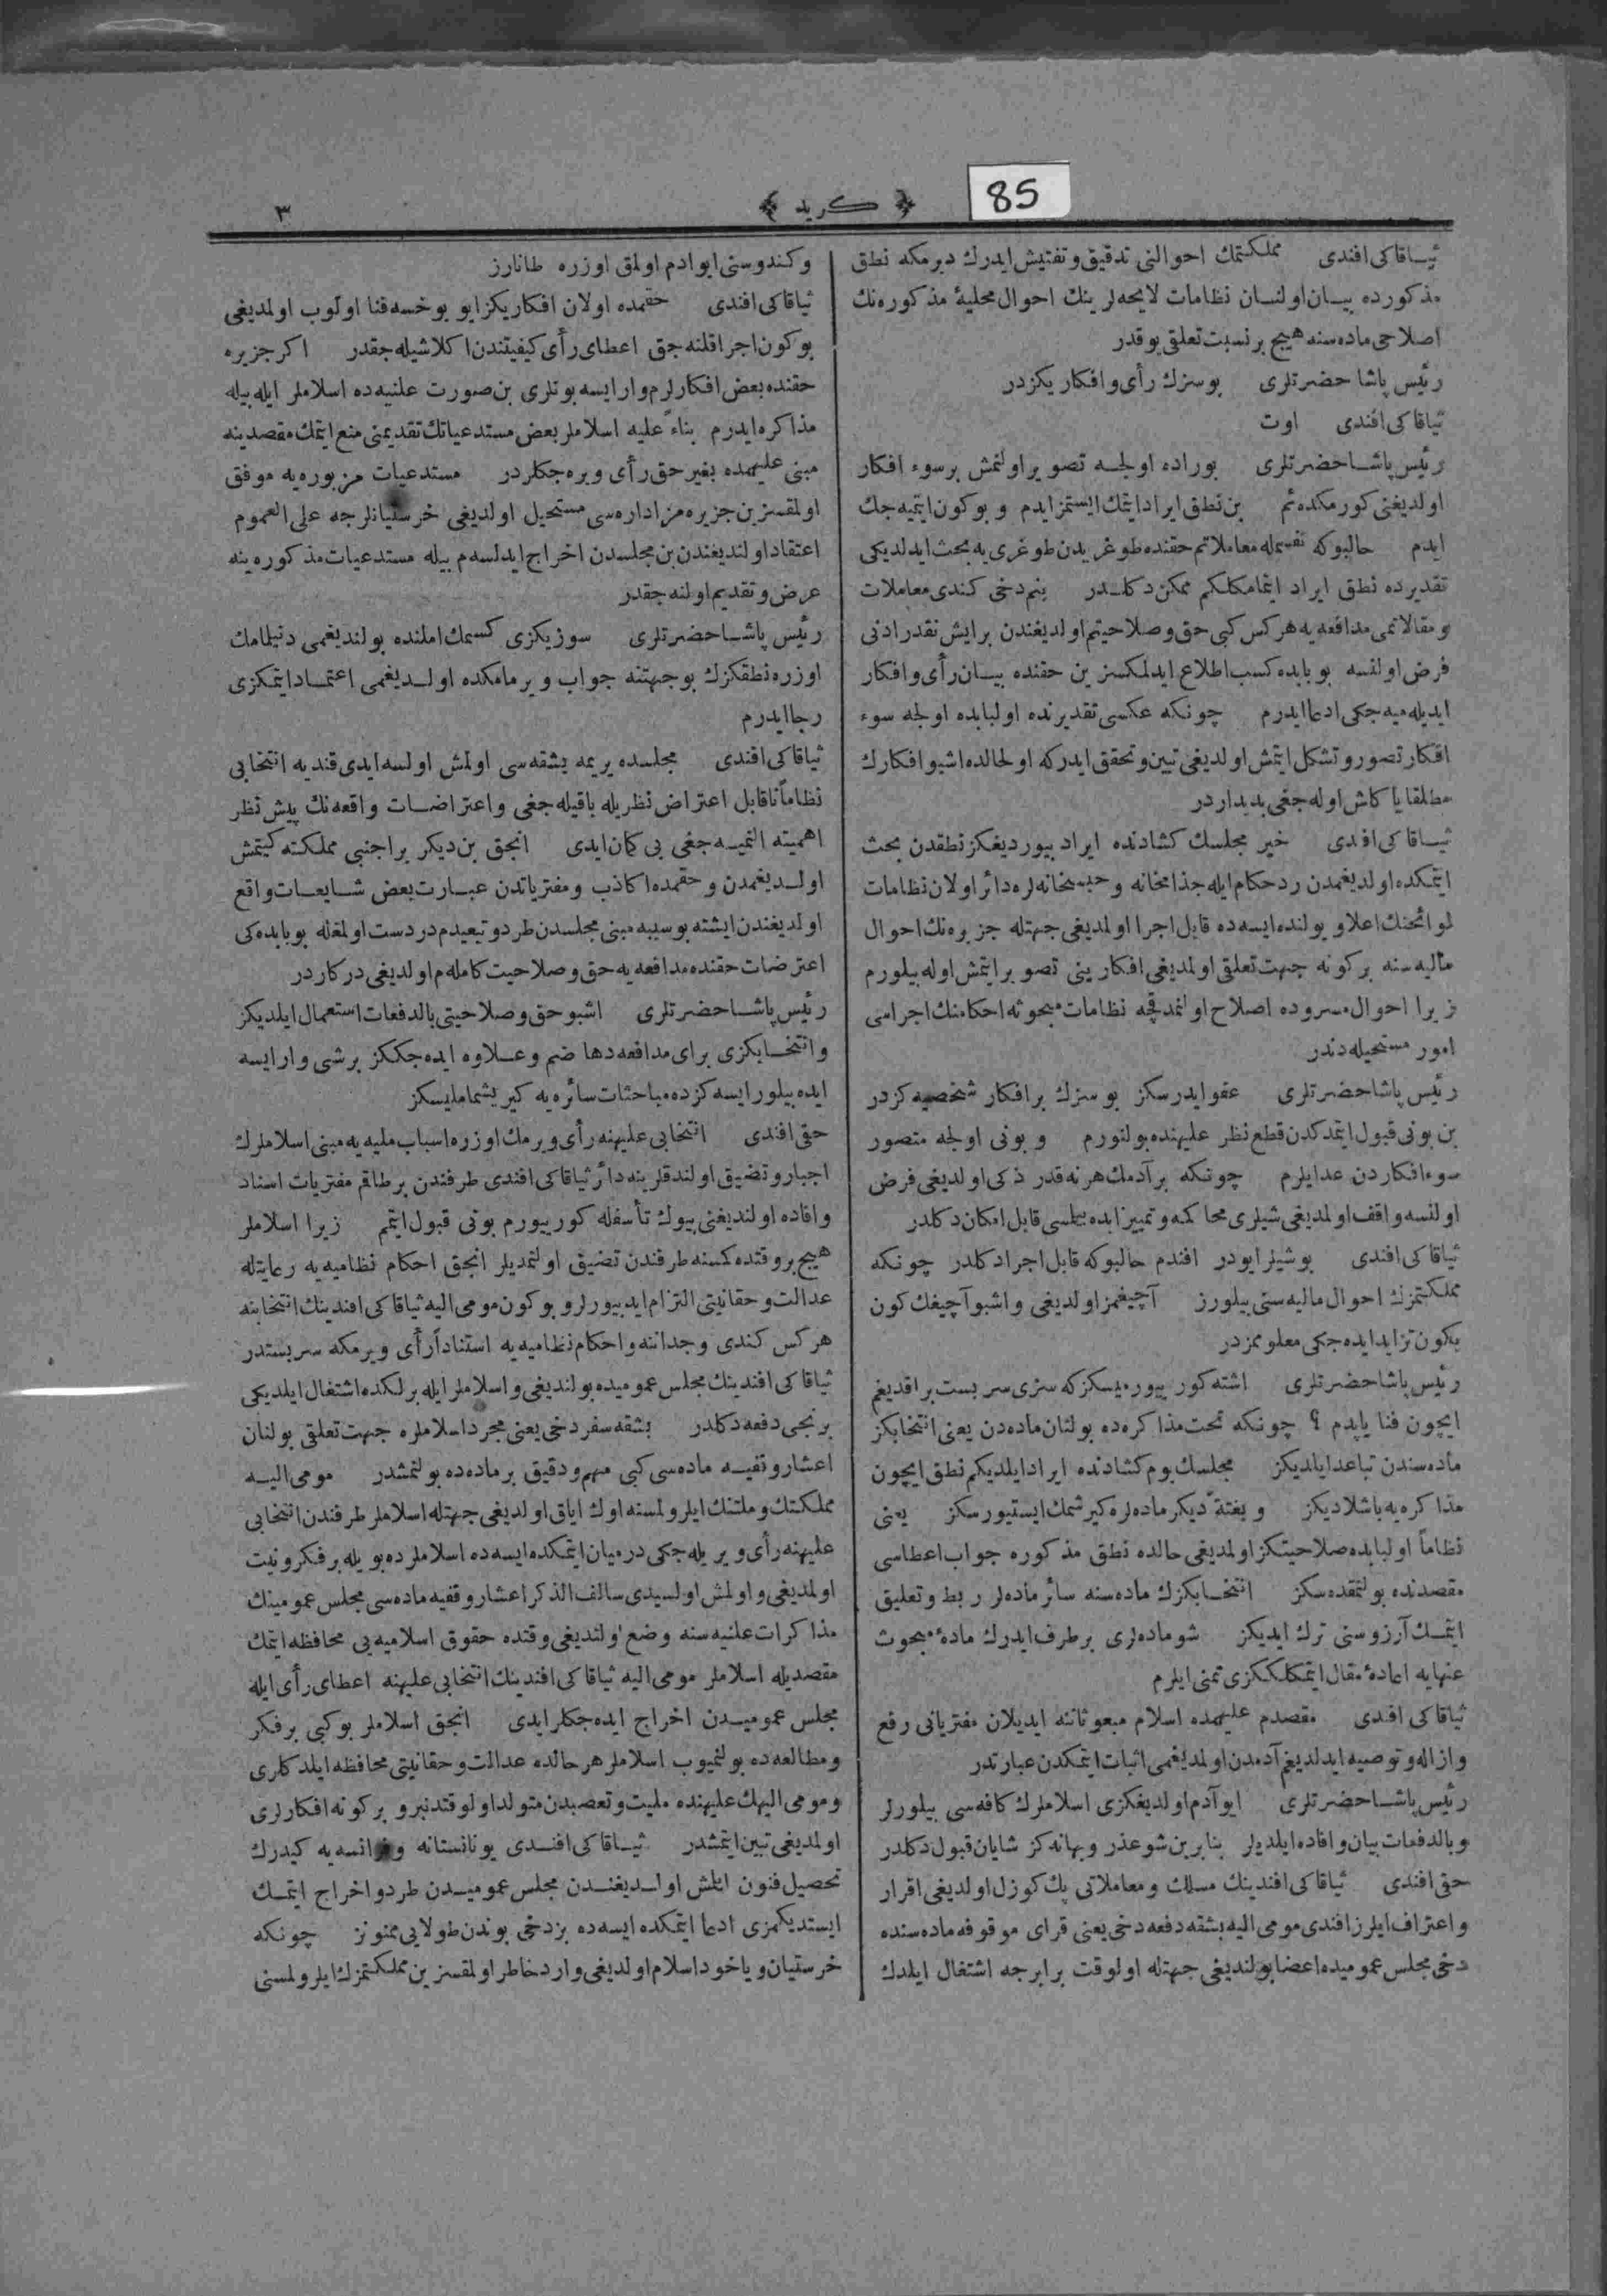 85
﴿ كريد ﴾
٣
ثياقاكی افندی مملكتمك احوالنی تدقيق و تفتيش ايدرك ديرمكه نطق
مذكورده بيان اولنان نظامات لايحه‌لرينك احوال محليهٔ مذكوره‌نك
اصلاحی ماده‌سنه هيچ بر نسبت تعلقی يوقدر
رئيس پاشا حضرتلری بو سزك رأی و افكاريكزدر
ثياقاكی افندی اوت
رئيس پاشا حضرتلری بوراده اولجه تصوير اولنمش بر سوء افكار
اولديغنی كورمكده‌ئم بن نطق ايراد ايتمك ايستمزايدم و بوكون ايتميه‌جك
ايدم حالبوكه نفسمله معاملاتم حقنده طوغريدن طوغری‌يه بحث ايدلديكی
تقديرده نطق ايراد ايتمامكلكم ممكن دكلدر بنم دخی كندی معاملات
و مقالاتمی مدافعه‌يه هركس كبی حق و صلاحيتم اولديغندن بر ايش نقدر ادنی
فرض اولنسه بو بابده كسب اطلاع ايدلمكسزين حقنده بيان رأی و افكار
ايديله‌ميه‌جكی ادعا ايدرم چونكه عكسی تقديرنده اولبابده اولجه سوء
افكار تصور و تشكل ايتمش اولديغی تبين و تحقق ايدركه اولحالده اشبو افكارك
مطلقا ياكلش اوله‌جغی بديداردر
ثياقاكی افندی خير مجلسك كشادنده ايراد بيورديغكز نطقدن بحث
ايتمكده اولديغمدن رد حكام ايله جذامخانه و حبسخانه‌لره دائر اولان نظامات
لوائحنك اعلا و يولنده ايسه‌ده قابل اجرا اولمديغی جهتله جزيره‌نك احوال
ماليه‌سنه بركونه جهت تعلقی اولمديغی افكارينی تصوير ايتمش اوله‌بيلورم
زيرا احوال مسروده اصلاح اولنمدقچه نظامات مبحوثه احكامنك اجراسی
امور مستحيله‌دندر
رئيس پاشا حضرتلری عفو ايدرسكز بو سزك بر افكار شخصيه‌كزدر
بن بونی قبول ايتمدكدن قطع نظر عليهنده بولنورم و بونی اولجه متصور
سوء افكاردن عد ايلرم چونكه بر آدمك هر نه قدر ذكی اولديغی فرض
اولنسه واقف اولمديغی شيلری محاكمه و تمييز ايده‌بيلمسی قابل امكان دكلدر
ثياقاكی افندی بو شيلر ايودر افندم حالبوكه قابل اجرا دكلدر چونكه
مملكتمزك احوال ماليه‌سنی بيلورز آچيغمز اولديغی و اشبو آچيغك كون
بكون تزايد ايده‌جكی معلومزدر
رئيس پاشا حضرتلری اشته كوريورميسكزكه سزی سربست براقديغم
ايچون فنا ياپدم ؟ چونكه تحت مذاكره‌ده بولنان ماده‌دن يعنی انتخابكز
ماده‌سندن تباعد ايلديكز مجلسك يوم كشادنده ايراد ايلديكم نطق ايچون
مذاكره‌يه باشلاديكز و بغتةً ديكر ماده‌لره كيرشمك ايستيورسكز يعنی
نظاماً اولبابده صلاحيتكز اولمديغی حالده نطق مذكوره جواب اعطاسی
مقصدنده بولنمقده‌سكز انتخابكزك ماده‌سنه سائر ماده‌لر ربط و تعليق
ايتمك آرزوسنی ترك ايديكز شو ماده‌لری برطرف ايدرك مادهٔ مبحوث
عنهايه اعادهٔ مقال ايتمكلككزی تمنی ايلرم
ثياقاكی افندی مقصدم عليهمده اسلام مبعوثاننه ايديلان مفترياتی رفع
و ازاله و توصيه ايدلديغم آدمدن اولمديغمی اثبات ايتمكدن عبارتدر
رئيس پاشا حضرتلری ايو آدم اولديغكزی اسلاملرك كافه‌سی بيلورلر
و بالدفعات بيان و افاده ايلديلر بنابرين شو عذر و بهانه‌كز شايان قبول دكلدر
حقی افندی ثياقاكی افندينك مسلك و معاملاتی پك كوزل اولديغی اقرار
و اعتراف ايلرز افندی مومی اليه بشقه دفعه دخی يعنی قرای موقوفه ماده‌سنده
دخی مجلس عموميده اعضا بولنديغی جهتله اولوقت برابرجه اشتغال ايلدك
و كندوسنی ايو ادم اولمق اوزره طانارز
ثياقاكی افندی حقمده اولان افكاريكز ايو يوخسه فنا اولوب اولمديغی
بوكون اجرا قلنه‌جق اعطای رأی كيفيتندن اكلاشيله‌جقدر اكر جزيره
حقنده بعض افكارلرم وار ايسه بونلری بن صورت علنيه‌ده اسلاملر ايله بيله
مذاكره ايدرم بناءً عليه اسلاملر بعض مستدعياتك تقديمنی منع ايتمك مقصدينه
مبنی عليهمده بغير حق رأی ويره‌جكلردر مستدعيات مزبوره‌يه موفق
اولمقسزين جزيره‌مز اداره‌سی مستحيل اولديغی خرستيانلرجه علی العموم
اعتقاد اولنديغندن بن مجلسدن اخراج ايدلسه‌م بيله مستدعيات مذكوره ينه
عرض و تقديم اولنه‌جقدر
رئيس پاشا حضرتلری سوزيكزی كسمك املنده بولنديغمی دنيلمامك
اوزره نطقكزك بو جهتنه جواب ويرمامكده اولديغمی اعتماد ايتمكزی
رجا ايدرم
ثياقاكی افندی مجلسده يريمه بشقه‌سی اولمش اولسه‌ايدی قنديه انتخابی
نظاماً ناقابل اعتراض نظريله باقيله‌جغی و اعتراضات واقعه‌نك پيش نظر
اهميته النميه‌جغی بی كمان ايدی انجق بن ديكر بر اجنبی مملكته كيتمش
اولديغمدن و حقمده اكاذب و مفترياتدن عبارت بعض شايعات واقع
اولديغندن ايشته بو سببه مبنی مجلسدن طرد و تبعيدم دردست اولمغله بو بابده‌كی
اعتراضات حقنده مدافعه‌يه حق و صلاحيت كامله‌م اولديغی دركاردر
رئيس پاشا حضرتلری اشبو حق و صلاحيتی بالدفعات استعمال ايلديكز
و انتخابكزی برای مدافعه دها ضم و علاوه ايده‌جككز بر شی وار ايسه
ايده‌بيلور ايسه‌كزده مباحثات سائره‌يه كيريشماملیسكز
حقی افندی انتخابی عليهنه رأی ويرمك اوزره اسباب مليه‌يه مبنی اسلاملرك
اجبار و تضييق اولندقلرينه دائر ثياقاكی افندی طرفندن بر طاقم مفتريات اسناد
و افاده اولنديغنی بيوك تأسفله كورييورم بونی قبول ايتمم زيرا اسلاملر
هيچ بر وقتده كمسنه طرفندن تضييق اولنمديلر انجق احكام نظاميه‌يه رعايتله
عدالت و حقانيتی التزام ايدييورلر و بوكون مومی اليه ثياقاكی افندينك انتخابنه
هركس كندی وجداننه و احكام نظاميه‌يه استناداً رأی ويرمكه سربستدر
ثياقاكی افندينك مجلس عموميده بولنديغی و اسلاملر ايله برلكده اشتغال ايلديكی
برنجی دفعه دكلدر بشقه سفر دخی يعنی مجرد اسلاملره جهت تعلقی بولنان
اعشار وقفيه ماده‌سی كبی مهم و دقيق بر ماده‌ده بولنمشدر مومی اليه
مملكتك و ملتنك ايلرولمسنه اوك اياق اولديغی جهتله اسلاملر طرفندن انتخابی
عليهنه رأی ويريله‌جكی درميان ايتمكده ايسه‌ده اسلاملرده بويله بر فكر و نيت
اولمديغی و اولمش اولسيدی سالف الذكر اعشار وقفيه ماده‌سی مجلس عمومينك
مذاكرات علنيه‌سنه وضع اولنديغی وقتده حقوق اسلاميه‌يی محافظه ايتمك
مقصديله اسلاملر مومی اليه ثياقاكی افندينك انتخابی عليهنه اعطای رأی ايله
مجلس عموميدن اخراج ايده‌جكلر ايدی انجق اسلاملر بو كبی بر فكر
و مطالعه‌ده بولنميوب اسلاملر هر حالده عدالت و حقانيتی محافظه ايلدكلری
و مومی اليهك عليهنده مليت و تعصبدن متولد اولوقتدنبرو بركونه افكارلری
اولمديغی تبين ايتمشدر ثياقاكی افندی يونانستانه و فرانسه‌يه كيدرك
تحصيل فنون ايتمش اولديغندن مجلس عموميدن طرد و اخراج ايتمك
ايستديكمزی ادعا ايتمكده ايسه‌ده بز دخی بوندن طولايی ممنونز چونكه
خرستيان و ياخود اسلام اولديغی وارد خاطر اولمقسزين مملكتمزك ايلرولمسنی